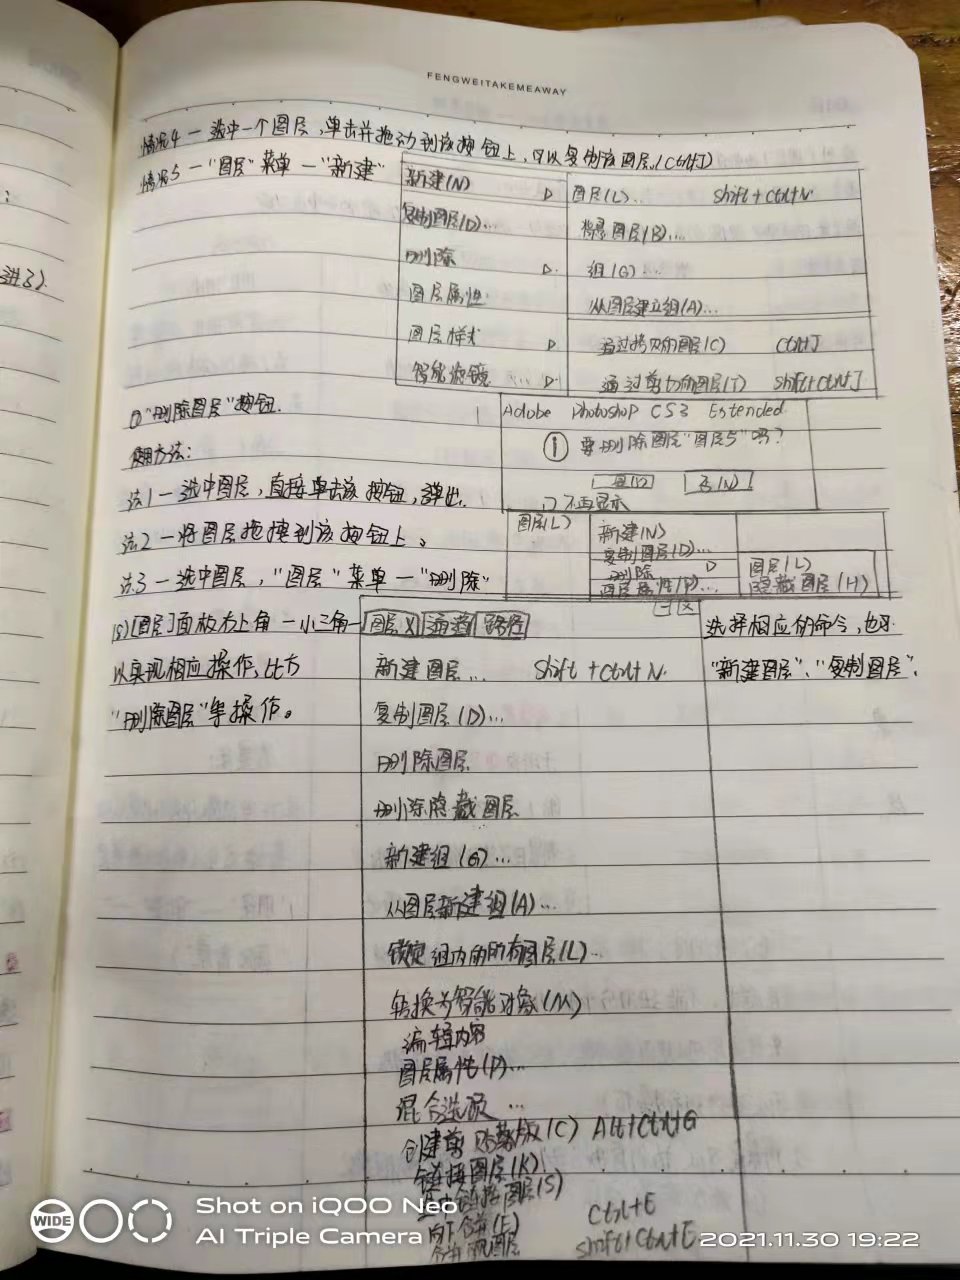 FENGWEITAKEMEAWAY
情况4 — 选中一个图层,单击并拖动到该按钮上,可以复制该图层.(Ctrl+J)
情况5 — "图层"菜单 — "新建"
新建(N) ▷ 图层(L)... Shift+Ctrl+N
复制图层(D)... 背景图层(B)...
删除 ▷ 组(G)...
图层属性 从图层建立组(A)...
图层样式 ▷ 通过拷贝的图层(C) Ctrl+J
智能滤镜 ▷ 通过剪切的图层(T) Shift+Ctrl+J
"删除图层"按钮.
使用方法:
Adobe Photoshop CS3 Extended
! 要删除图层"图层5"吗?
是(Y) 否(N)
不再显示
法1 — 选中图层,直接单击该按钮,弹出.
法2 — 将图层拖拽到该按钮上。
法3 — 选中图层,"图层"菜单 — "删除"
图层(L) 新建(N)
复制图层(D)...
删除 ▷ 图层(L)
图层属性(P)... 隐藏图层(H)
(5)[图层]面板右上角 — 小三角 — 图层X 通道 路径 选择相应的命令,也可
以实现相应操作,比方 "新建图层"、"复制图层"、
"删除图层"等操作。
新建图层... Shift+Ctrl+N
复制图层(D)...
删除图层
删除隐藏图层
新建组(G)...
从图层新建组(A)...
锁定组内的所有图层(L)...
转换为智能对象(M)
编辑内容
图层属性(P)...
混合选项...
创建剪贴蒙版(C) Alt+Ctrl+G
链接图层(K)
链接图层(S)
向下合并(E) Ctrl+E
合并可见图层 Shift+Ctrl+E
进了).
WIDE
Shot on iQOO Neo
AI Triple Camera
2021.11.30 19:22